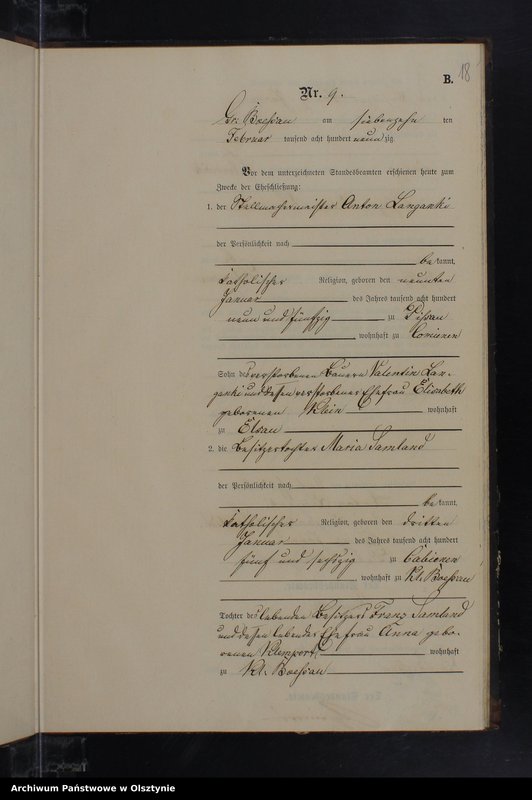 B. 18
Nr. 9.
Gr. Boessau am siebenzehn ten
Februar tausend acht hundert neun zig.
Vor dem unterzeichneten Standesbeamten erschienen heute zum
Zwecke der Eheschließung:
1. der Stellmachermeister Anton Langanki
der Persönlichkeit nach
be kannt,
katholischer Religion, geboren den neunten
Januar des Jahres tausend acht hundert
neun und fünfzig zu
wohnhaft zu
Sohn des verstorbenen Bauern Valentin Lan-
ganki und dessen verstorbener Ehefrau Elisabeth
geborenen Klein wohnhaft
zu Elsau
2. die Besitzertochter Maria Samland
der Persönlichkeit nach
be kannt,
katholischer Religion, geboren den dritten
Januar des Jahres tausend acht hundert
fünf und sechszig zu Cabienen
wohnhaft zu Kl. Boessau
Tochter des lebenden Besitzers Franz Samland
und dessen lebender Ehefrau Anna gebo-
renen wohnhaft
zu Kl. Boessau
Archiwum Państwowe w Olsztynie